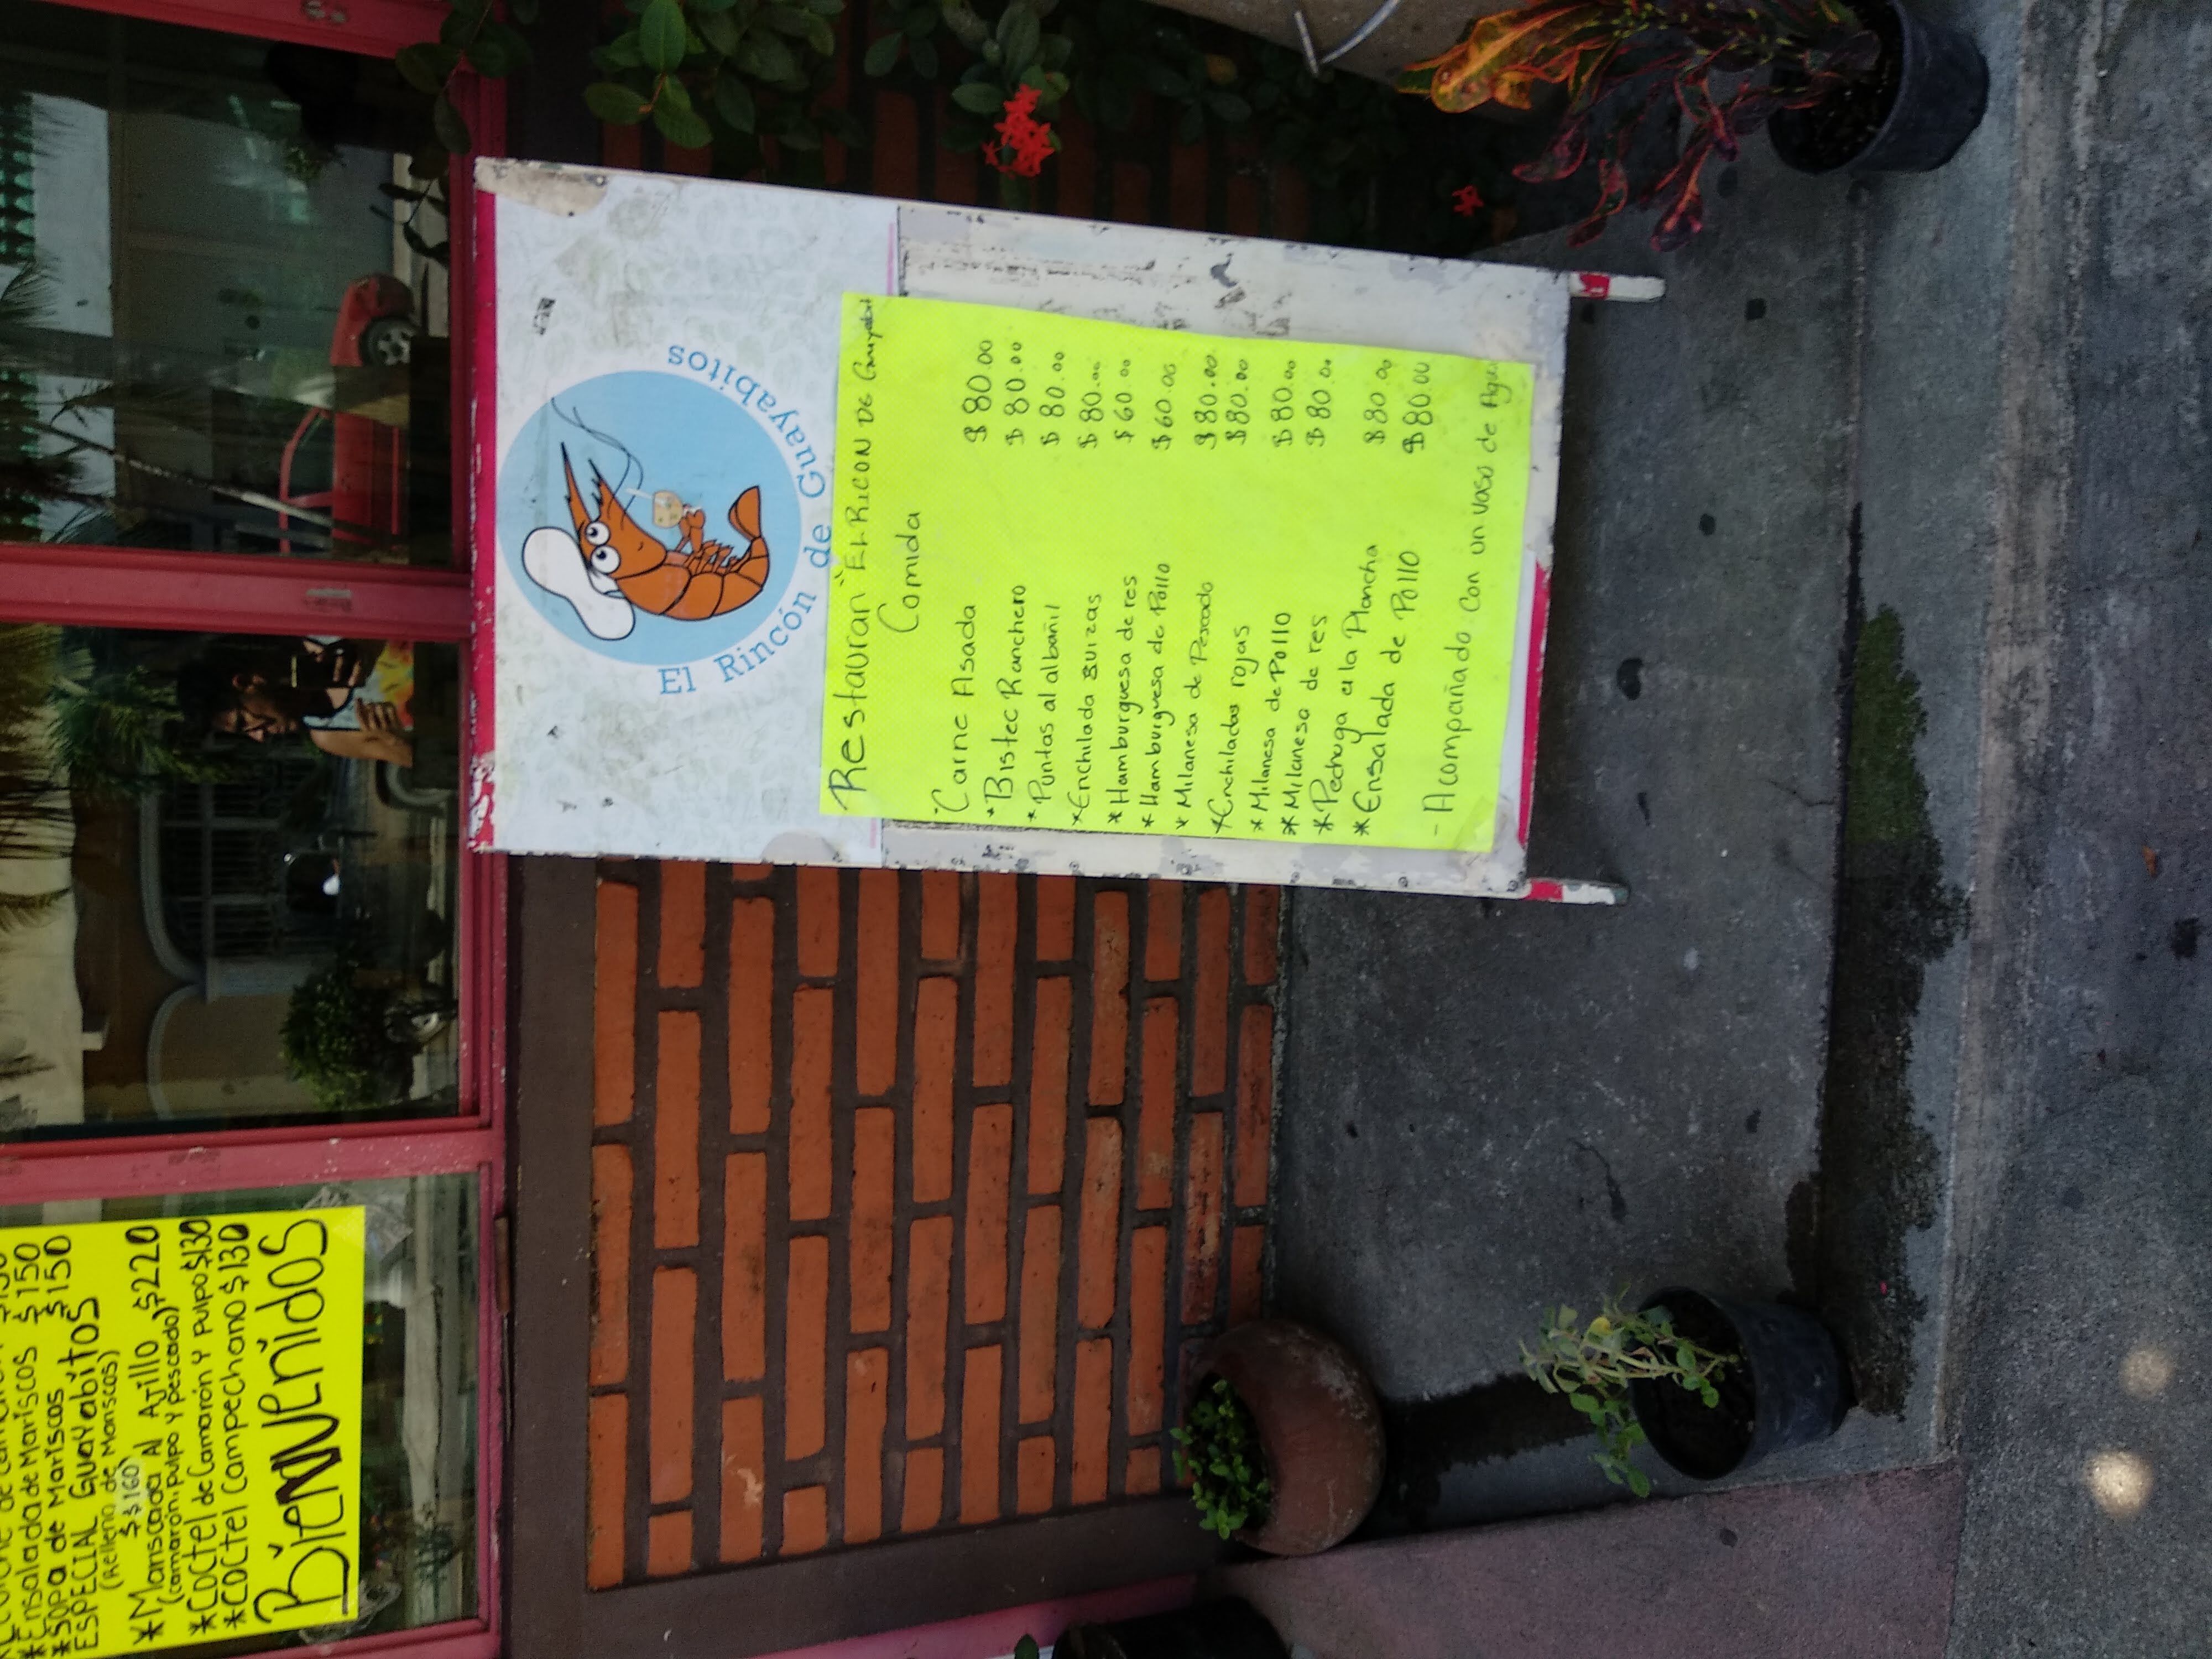 *Ensalada de Mariscos $150
*Sopa de Mariscos $150
ESPECIAL Guayabitos
(Relleno de Mariscos)
$$160
*Mariscada Al Ajillo $220
(camarón, pulpo y pescado)
*Coctel de Camarón Y pulpo $130
*Coctel Campechano $130
Bienvenidos
El Rincón de Guayabitos
Restauran "EL RICON DE Guayabit
Comida
Carne Asada $80.00
*Bistec Ranchero $80.00
*Puntas al albañil $80.00
*Enchilada suizas $80.00
*Hamburguesa de res $60.00
*Hamburguesa de Pollo $60.00
*Milanesa de Pescado $80.00
*Enchiladas rojas $80.00
*Milanesa de Pollo $80.00
*Milanesa de res $80.00
*Pechuga a la Plancha $80.00
*Ensalada de Pollo $80.00
- Acompañado con un vaso de Agua